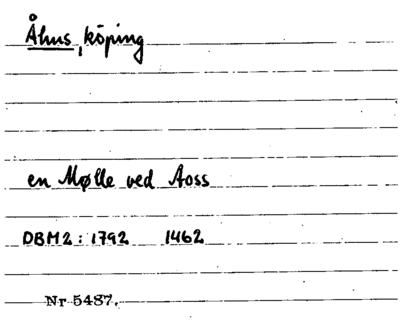 Åhus, köping
en Mølle ved Aoss
DBM2: 1792 1462
Nr 5487.